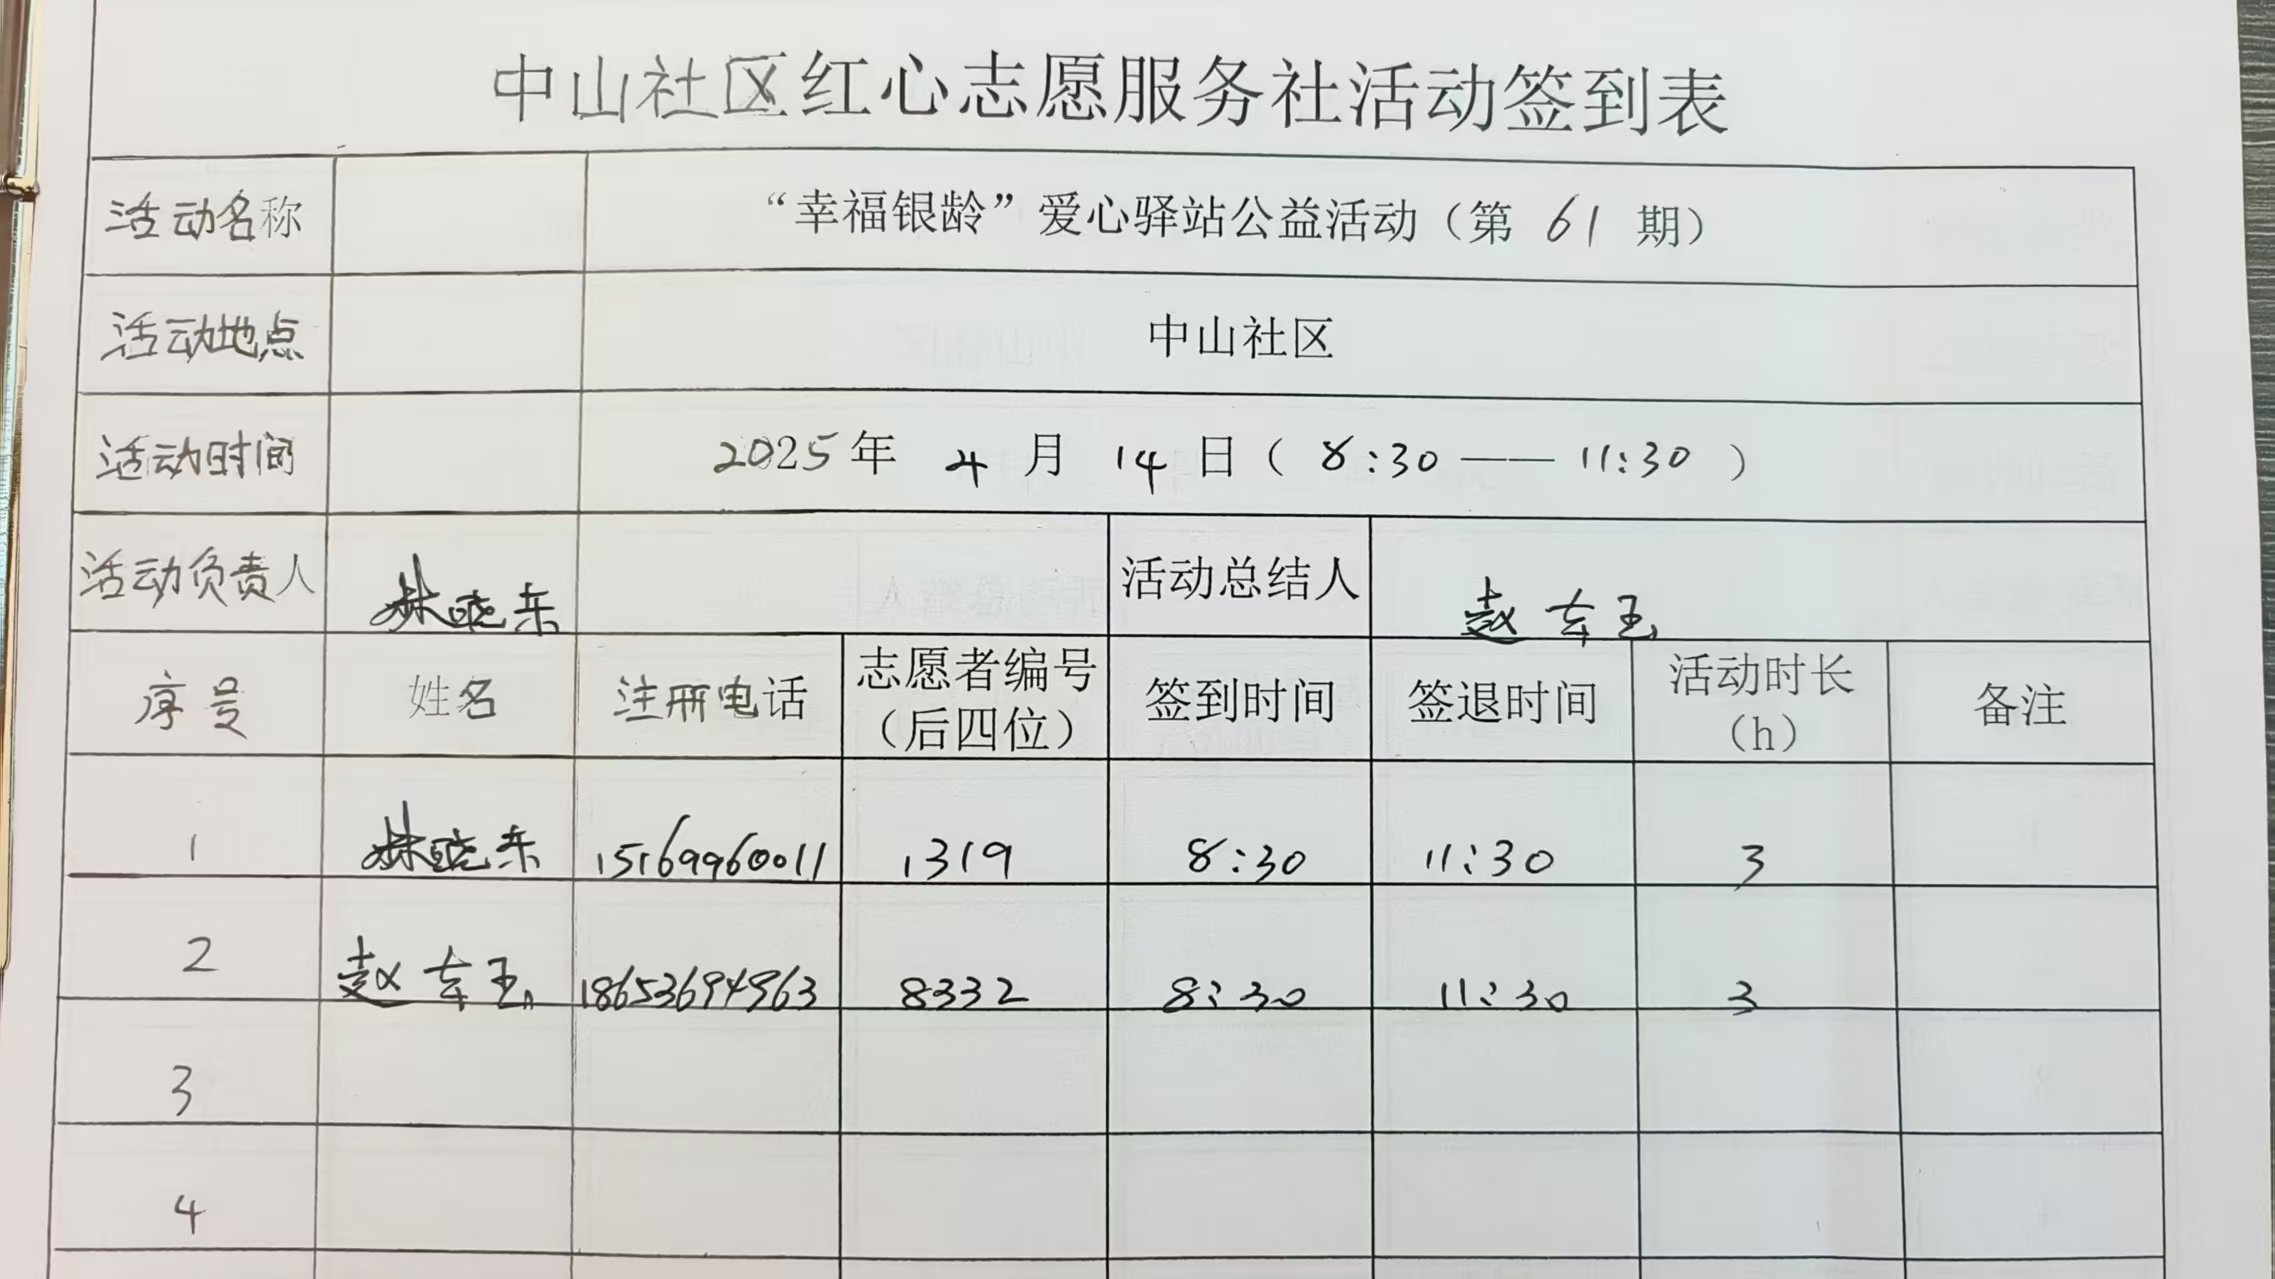 中山社区红心志愿服务社活动签到表
活动名称 “幸福银龄”爱心驿站公益活动（第 61 期）
活动地点 中山社区
活动时间 2025年 4 月 14 日（ 8:30 —— 11:30 ）
活动负责人 林晓东 活动总结人 赵
序号 姓名 注册电话 志愿者编号（后四位） 签到时间 签退时间 活动时长（h） 备注
1 林晓东 15169960011 1319 8:30 11:30 3
2 赵 18653694963 8332 8:30 11:30 3
3
4